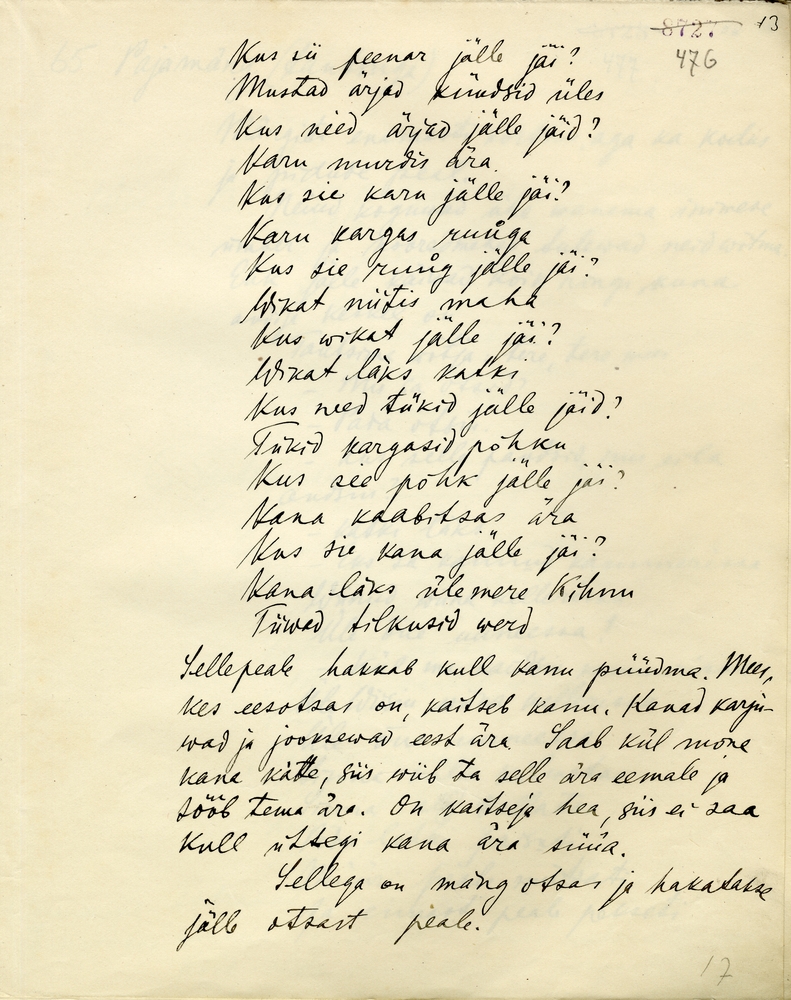 8727 13
476
Kus sii peenar jälle jäi?
Mustad ärjad kündsid üles
Kus need ärjad jälle jäid?
Karu murdis ära.
Kus sie karu jälle jäi?
Karu kargas ruuga
Kus sie ruug jälle jäi?
Wikat niitis maha
Kus wikat jälle jäi?
Wikat läks katki
Kus need tükid jälle jäid?
Tükid kargasid põhku
Kus see põhk jälle jäi?
Kana kaabitsas ära
Kus sie kana jälle jäi?
Kana läks üle mere Kihnu
Tiiwad tilkusid werd
Sellepeale hakkab kull kanu püüdma. Mees,
kes eesotsas on, kaitseb kanu. Kanad karju-
wad ja jooksewad eest ära. Saab kül mone
kana kätte, siis wiib ta selle ära eemale ja
sööb tema ära. On kaitseja hea, siis ei saa
kull ühtegi kana ära süüa.
Sellega on mäng otsas ja hakatakse
jälle otsast peale.
17